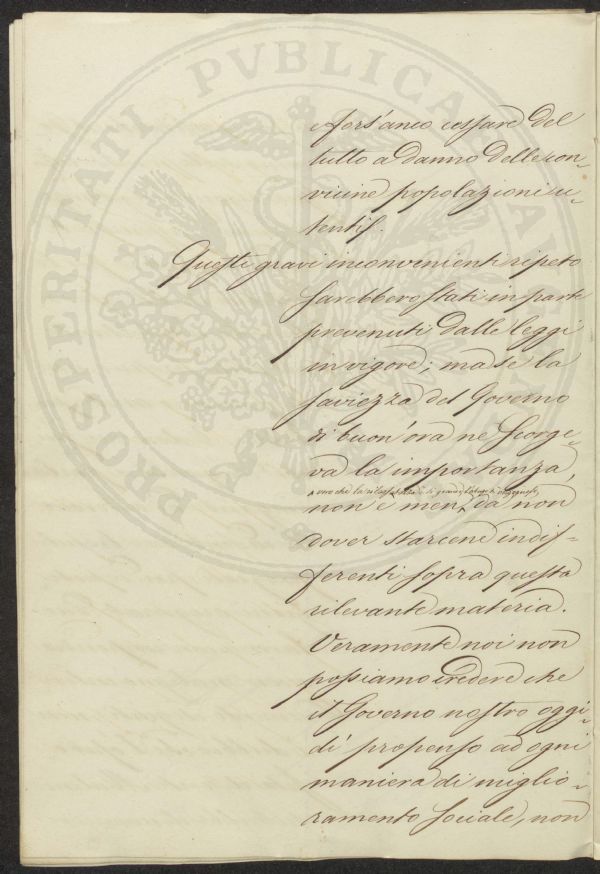 PROSPERITATI PVBLICAE AVGENDAE
e fors'anco cessare del
tutto a danno delle con-
vicine popolazioni u-
tenti.
Questi gravi inconvenienti ripeto
sarebbero stati in parte
prevenuti dalle leggi
in vigore; ma se la
saviezza del Governo
di buon'ora ne scorge-
va la importanza,
vero che la
non è men da non
dover starcene indif-
ferenti sopra questa
rilevante materia.
Veramente noi non
possiamo credere che
il Governo nostro oggi-
dì propenso ad ogni
maniera di miglio-
ramento sociale, non